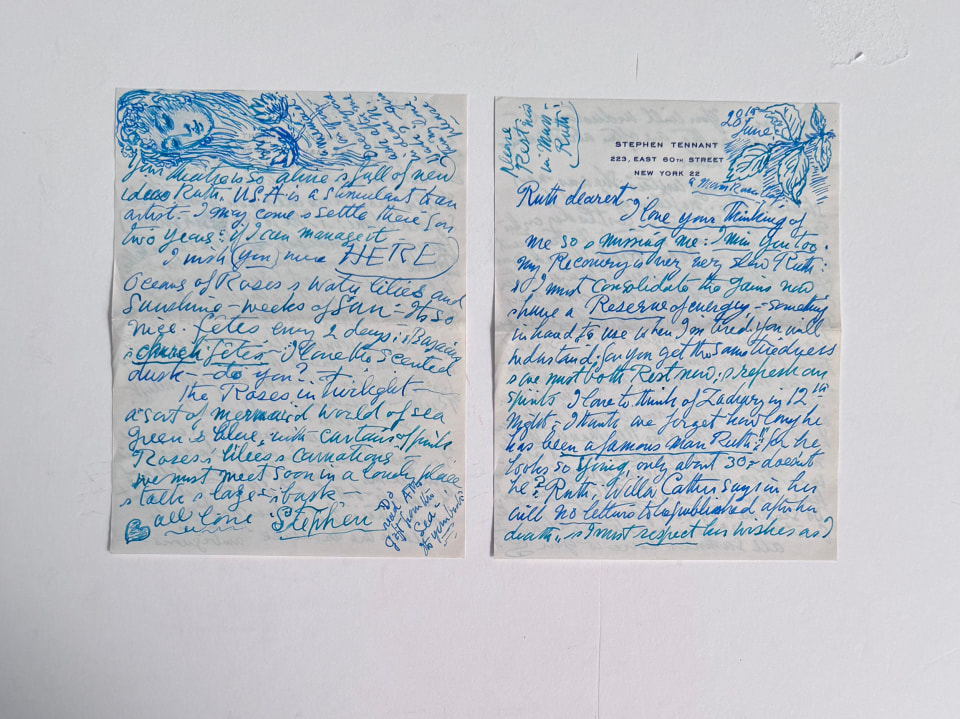 Please
Rest this
in Mass-
Ruth!
28th
June.
STEPHEN TENNANT
223, EAST 60TH STREET
NEW YORK 22
Ruth dearest - I love your thinking of
me so & missing me: I miss you too.
My Recovery is very very slow Ruth:
& I must consolidate the gains now
& have a Reserve of energy, - something
in hand to use when I'm tired. You will
understand; for you get the same tiredness
& we must both Rest now, & refresh our
spirits I love to think of Zachary in 12th
Night, I think we forget how long he
has been a famous man Ruth!! for he
looks so young, only about 30, - doesn't
he? Ruth, Willa Cather says in her
will no letters to be published after her
death, & I must respect her wishes as I
Your mind is so alive & full of new
ideas Ruth. U.S.A is a stimulant to an
artist - I may come & settle there for
two years: if I can manage it
I wish (you) were HERE
Oceans of Roses & Water lilies and
Sunshine - weeks of Sun - It's so
nice. fêtes every 2 days, & Bazaars
& church fêtes - I love the scented
dusk - do you? -
The Roses in twilight -
a sort of mermaid world of sea
Green & blue, with curtains of pink
Roses & lilies & carnations -
we must meet soon in a lovely place
& talk & laze & bask -
all love Stephen